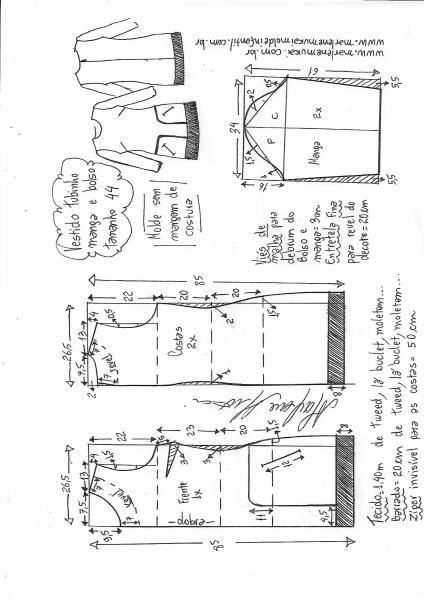 www.marlenemukai.com.br
www.marlenemukaimoldeinfantil.com.br
Vestido Tubinho
manga e bolso
Tamanho 44
Molde sem
margem de
costura
61
5,5
34
2
0,5
C
2x
F
Manga
1,5
16
5,5
Viés de
malha para
debrum do
bolso e
manga=3cm
Entretela fina
para revel do
decote=20cm
85
22
20
20
26,5
13
4
7,5
0,5
revel
7
2
Costas
2x
2
1,5
2
8
22
23
20
26,5
13
4
7,5
0,5
7
revel
7
9,5
Frente
1x
dobra
3
3
1,5
15
11
4,5
8
85
Tecido=1,40m de tweed, lã buclet, moletom...
barrado=20cm de tweed, lã buclet, moletom...
Zíper invisível para as costas=50cm